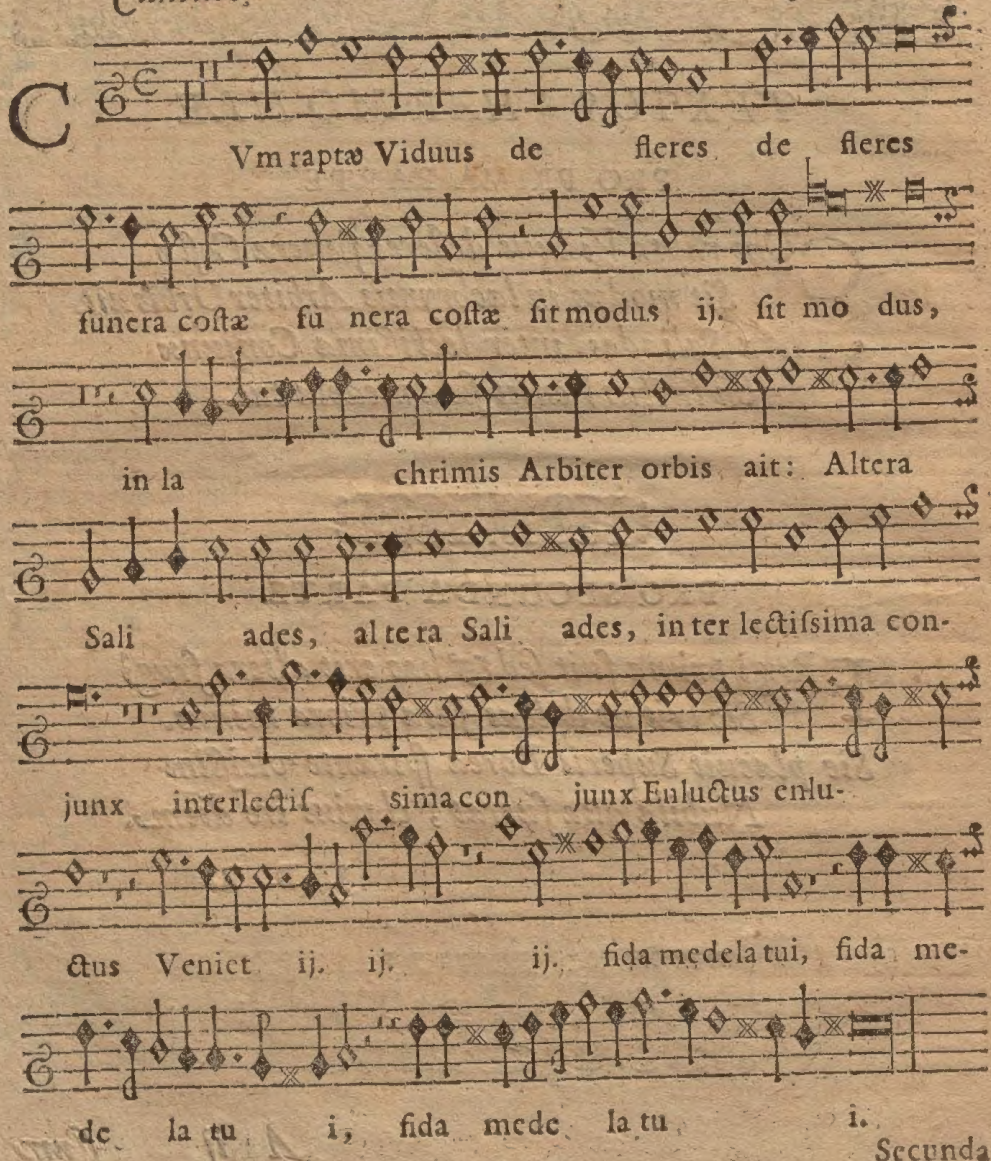 C
Vm raptæ Viduus de fleres de fleres
funera costæ fu nera costæ sit modus ij. sit mo dus,
in la chrimis Arbiter orbis ait: Altera
Sali ades, al te ra Sali ades, in ter lectissima con-
junx interlectis sima con junx Enluctus enlu-
ctus Veniet ij. ij. ij. fida medela tui, fida me-
de la tu i, fida mede la tu i.
Secunda